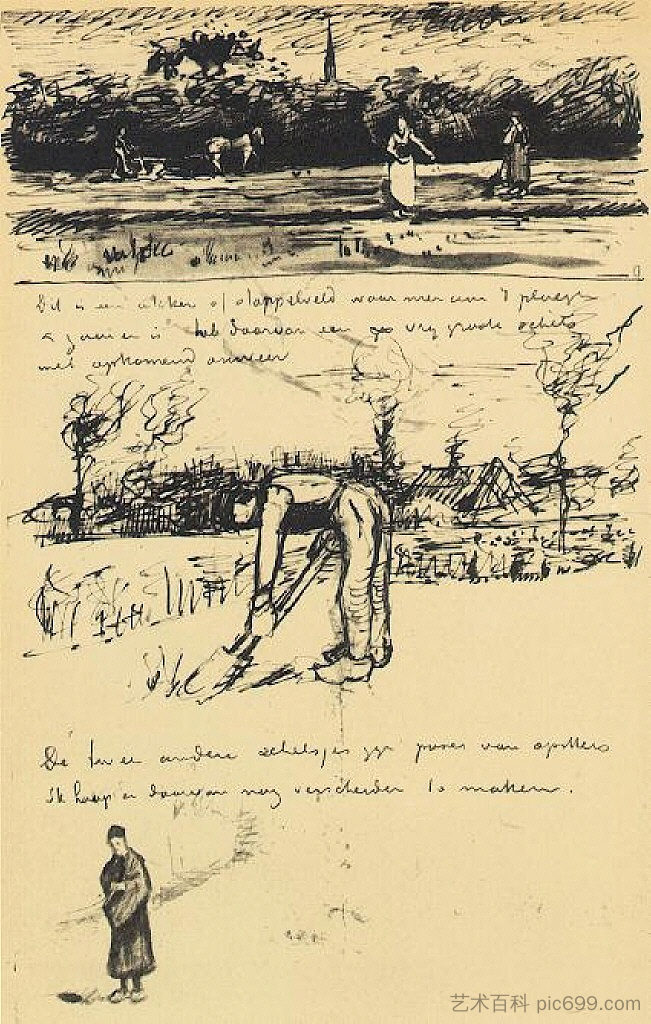 Dit is een akker of stoppelveld waar men aan 't ploegen
& zaaien is heb daarvan een vrij groote schets
met opkomend onweer
De twee andere schetsjes zijn poses van spitters
ik hoop er daarvan nog verscheiden te maken.
艺术百科 pic699.com